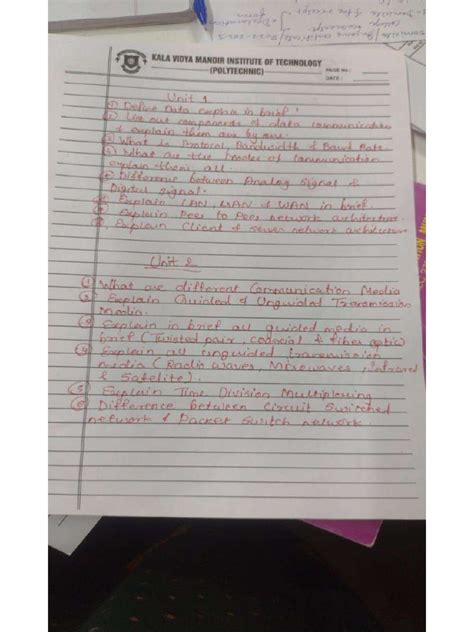 KALA VIDYA MANDIR INSTITUTE OF TECHNOLOGY
(POLYTECHNIC)
PAGE No.:
DATE:
Unit 1
① Define Data explain in brief
② List out components of data communication
& explain them one by one.
③ What is Protocol, Bandwidth & Baud Rate
④ What are the modes of communication
explain them, all.
Difference between Analog Signal &
Digital Signal.
Explain LAN, MAN & WAN in brief.
Explain Peer to Peer network architecture.
Explain Client & server network architecture
Unit 2
① What are different Communication Media
② Explain Guided & Unguided Transmission
Media.
③ Explain in brief all guided media in
brief (Twisted pair, coaxial & fiber optic)
④ Explain all unguided transmission
media (Radio waves, Microwaves, Infrared
& Satelite).
⑤ Explain Time Division Multiplexing
⑥ Difference between Circuit Switched
network & Packet Switch network.